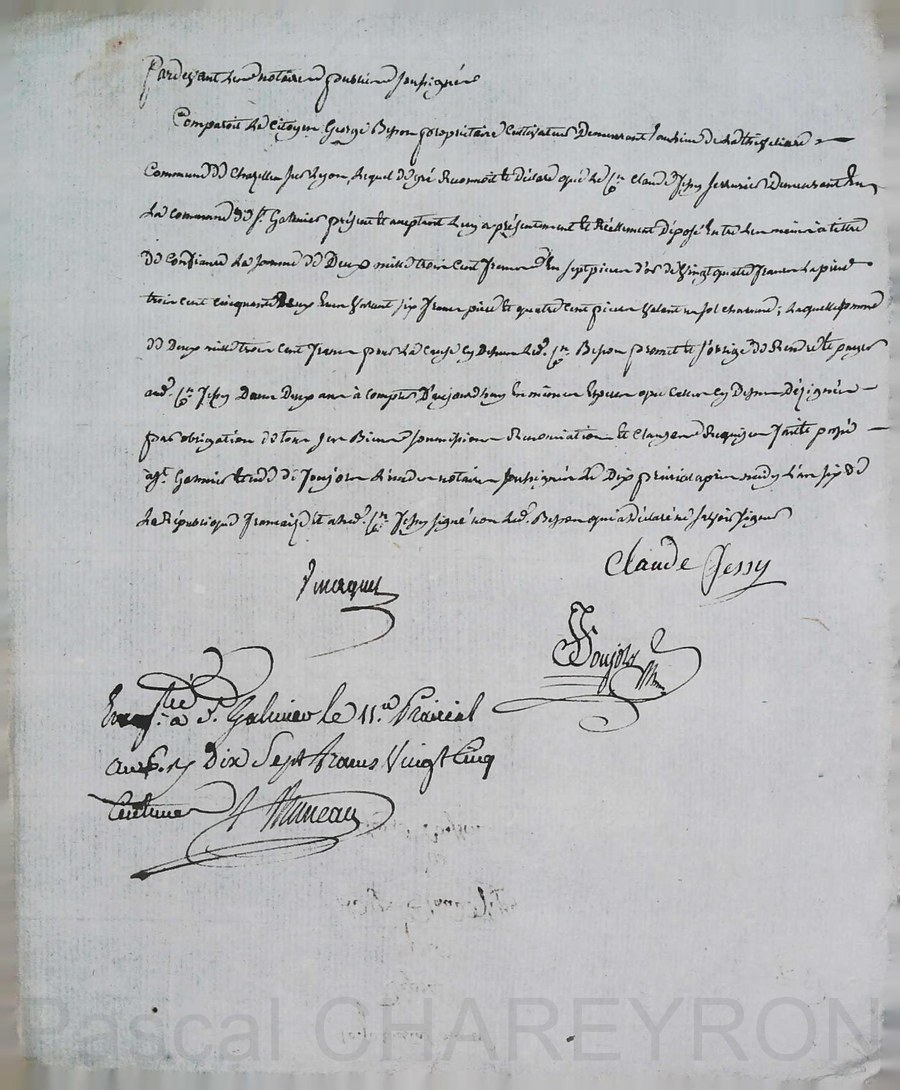 Pardevant les notaires publics soussignés
Comparoit le Citoyen George Besson propriétaire Cultivateur Demeurant au lieu de
Commune de Chazelles sur Lyon, lequel de gré Reconnoit et déclare que le Cn Claude Jessy serrurier Demeurant En
La commune de St. Galmier présent et acceptant luy a présentement et Réellement déposé Entre les mains à titre
de Confiance La somme de Deux mille trois Cent francs En sept pieces d'or de Vingt quatre francs La piece
trois cent cinquante Deux Ecus Valant six francs piece et quatre Cent pieces Valant un sol chacune ; Laquelle somme
de Deux mille trois Cent francs pour La Cause cy Dessus led. Cn Besson promet et s'oblige de Rendre et payer
aud. Cn Jessy Dans Deux ans à compter D'aujourd'huy En mêmes Especes que Celles cy Dessus Désignées
par obligation de tous ses Biens soumissions Renonciations et Clauses Requises fait et passé
à St. Galmier Etude de Soujols L'un des notaires soussignés Le Dix prairial après midy L'an six de
La République française et a led. Cn Jessy signé non led. Besson qui a Déclaré ne savoir signer
Claude Jessy
Soujols
Enregtré à St. Galmier le 11.e Prairial
an 6. Dix Sept francs Vingt Cinq
Centimes
Pascal CHAREYRON